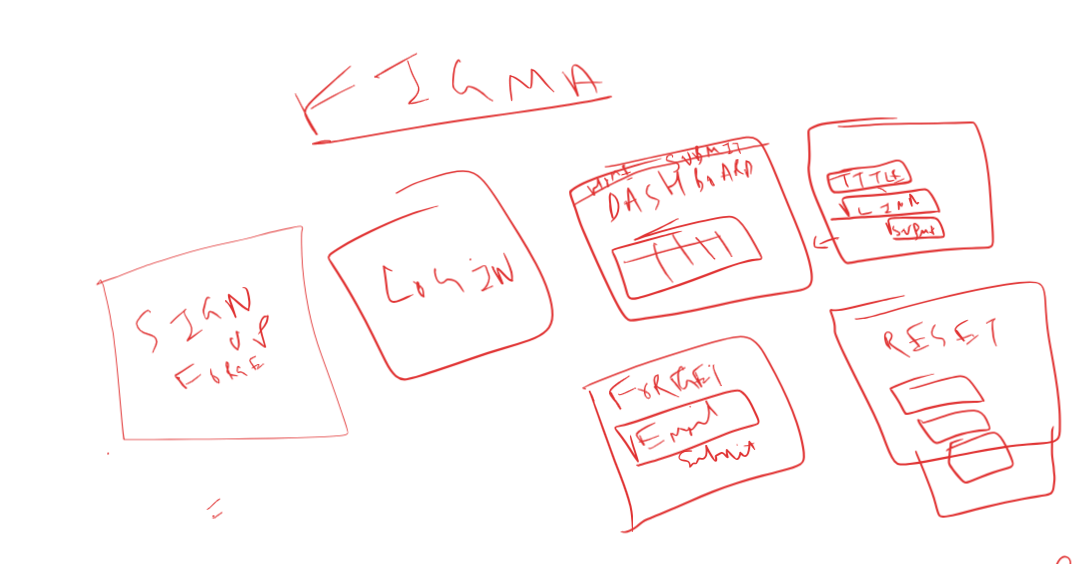 FIGMA
SIGN
UP
FORGE
LOGIN
HOME SUBMIT
DASHBOARD
TITLE
LINK
SUBMIT
FORGET
Email
Submit
RESET